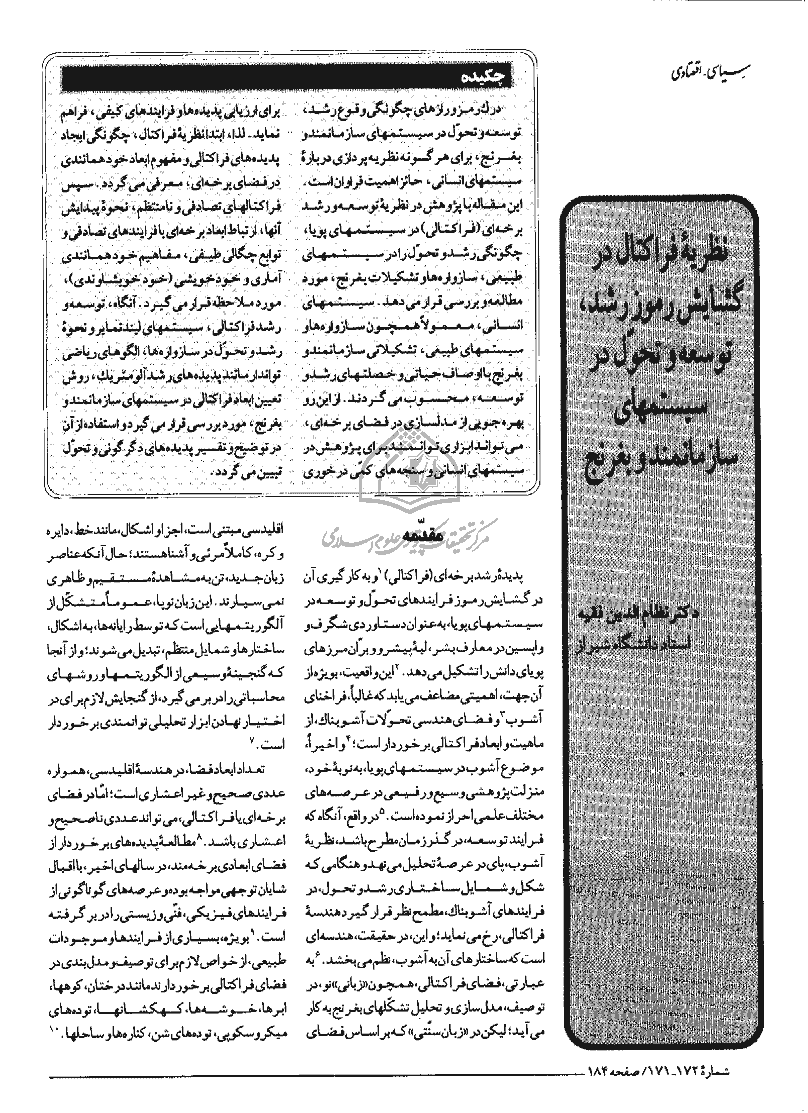 سیاسی-اقتصادی
نظریهٔ فراکتال در
گشایش رموز رشد،
توسعه و تحوّل در
سیستمهای
سازمانمند و بغرنج
دکتر نظام‌الدین فقیه
استاد دانشگاه شیراز
چکیده
درك رمز و رازهای چگونگی وقوع رشد،
توسعه و تحوّل در سیستمهای سازمانمند و
بغرنج، برای هر گونه نظریه پردازی دربارهٔ
سیستمهای انسانی، حائز اهمیت فراوان است.
این مقاله با پژوهش در نظریهٔ توسعه و رشد
برخه‌ای (فراکتالی) در سیستمهای پویا،
چگونگی رشد و تحوّل را در سیستمهای
طبیعی، سازواره‌ها و تشکیلات بغرنج، مورد
مطالعه و بررسی قرار می‌دهد. سیستمهای
انسانی، معمولاً همچون سازواره‌ها و
سیستمهای طبیعی، تشکیلاتی سازمانمند و
بغرنج با اوصاف حیاتی و خصلتهای رشد و
توسعه، محسوب می‌گردند. از این رو
بهره‌جویی از مدلسازی در فضای برخه‌ای،
می‌تواند ابزاری توانمند برای پژوهش در
سیستمهای انسانی و سنجه‌های کمّی در خوری
برای ارزیابی پدیده‌ها و فرایندهای کیفی، فراهم
نماید. لذا، ابتدا نظریهٔ فراکتال، چگونگی ایجاد
پدیده‌های فراکتالی و مفهوم ابعاد خودهمانندی
در فضای برخه‌ای، معرفی می‌گردد. سپس
فراکتالهای تصادفی و نامنتظم، نحوهٔ پیدایش
آنها، ارتباط ابعاد برخه‌ای با فرایندهای تصادفی و
توابع چگالی طیفی، مفاهیم خودهمانندی
آماری و خودخویشی (خودخویشاوندی)،
مورد ملاحظه قرار می‌گیرد. آنگاه، توسعه و
رشد فراکتالی، سیستمهای لیندنمایر و نحوهٔ
رشد و تحوّل در سازواره‌ها، الگوهای ریاضی
تواندار مانند پدیده‌های رشد آلومتریك، روش
تعیین ابعاد فراکتالی در سیستمهای سازمانمند و
بغرنج، مورد بررسی قرار می‌گیرد و استفاده از آن
در توضیح و تفسیر پدیده‌های دگرگونی و تحوّل
تبیین می‌گردد.
مرکز تحقیقات کامپیوتری علوم اسلامی
مقدّمه
پدیدهٔ رشد برخه‌ای (فراکتالی)۱ و به کارگیری آن
در گشایش رموز فرایندهای تحوّل و توسعه در
سیستمهای پویا، به عنوان دستاوردی شگرف و
واپسین در معارف بشر، لبهٔ پیشرو و برّان مرزهای
پویای دانش را تشکیل می‌دهد.۲ این واقعیت، بویژه از
آن جهت، اهمیتی مضاعف می‌یابد که غالباً، فراخنای
آشوب۳ و فضای هندسی تحوّلات آشوبناك، از
ماهیت و ابعاد فراکتالی برخوردار است؛۴ و اخیراً،
موضوع آشوب در سیستمهای پویا، به نوبهٔ خود،
منزلت پژوهشی وسیع و رفیعی در عرصه‌های
مختلف علمی احراز نموده است.۵ در واقع، آنگاه که
فرایند توسعه، در گذر زمان مطرح باشد، نظریهٔ
آشوب، پای در عرصهٔ تحلیل می‌نهد و هنگامی که
شکل و شمایل ساختاری رشد و تحول، در
فرایندهای آشوبناك، مطمح نظر قرار گیرد هندسهٔ
فراکتالی، رخ می‌نماید؛ و این، در حقیقت، هندسه‌ای
است که ساختارهای آن به آشوب، نظم می‌بخشد.۶ به
عبارتی، فضای فراکتالی، همچون «زبانی» نو، در
توصیف، مدل‌سازی و تحلیل تشکّلهای بغرنج به کار
می‌آید؛ لیکن در «زبان سنّتی» که بر اساس فضای
اقلیدسی مبتنی است، اجزا و اشکال، مانند خط، دایره
و کره، کاملاً مرئی و آشنا هستند؛ حال آنکه عناصر
زبان جدید، تن به مشاهدهٔ مستقیم و ظاهری
نمی‌سپارند. این زبان نوپا، عموماً متشکل از
آلگوریتمهایی است که توسط رایانه‌ها، به اشکال،
ساختارها و شمایل منتظم، تبدیل می‌شوند؛ و از آنجا
که گنجینهٔ وسیعی از الگوریتمها و روشهای
محاسباتی را در بر می‌گیرد، از گنجایش لازم برای در
اختیار نهادن ابزار تحلیلی توانمندی برخوردار
است.۷
تعداد ابعاد فضا، در هندسهٔ اقلیدسی، همواره
عددی صحیح و غیر اعشاری است؛ امّا در فضای
برخه‌ای یا فراکتالی، می‌تواند عددی ناصحیح و
اعشاری باشد.۸ مطالعهٔ پدیده‌های برخوردار از
فضای ابعادی برخه‌مند، در سالهای اخیر، با اقبال
شایان توجهی مواجه بوده و عرصه‌های گوناگونی از
فرایندهای فیزیکی، فنّی و زیستی را در بر گرفته
است.۹ بویژه، بسیاری از فرایندها و موجودات
طبیعی، از خواص لازم برای توصیف و مدل‌بندی در
فضای فراکتالی برخوردارند مانند درختان، کوهها،
ابرها، خوشه‌ها، کهکشانها، توده‌های
میکروسکوپی، توده‌های شن، کناره‌ها و ساحلها.۱۰
شمارهٔ ۱۷۲-۱۷۱/ صفحه ۱۸۴